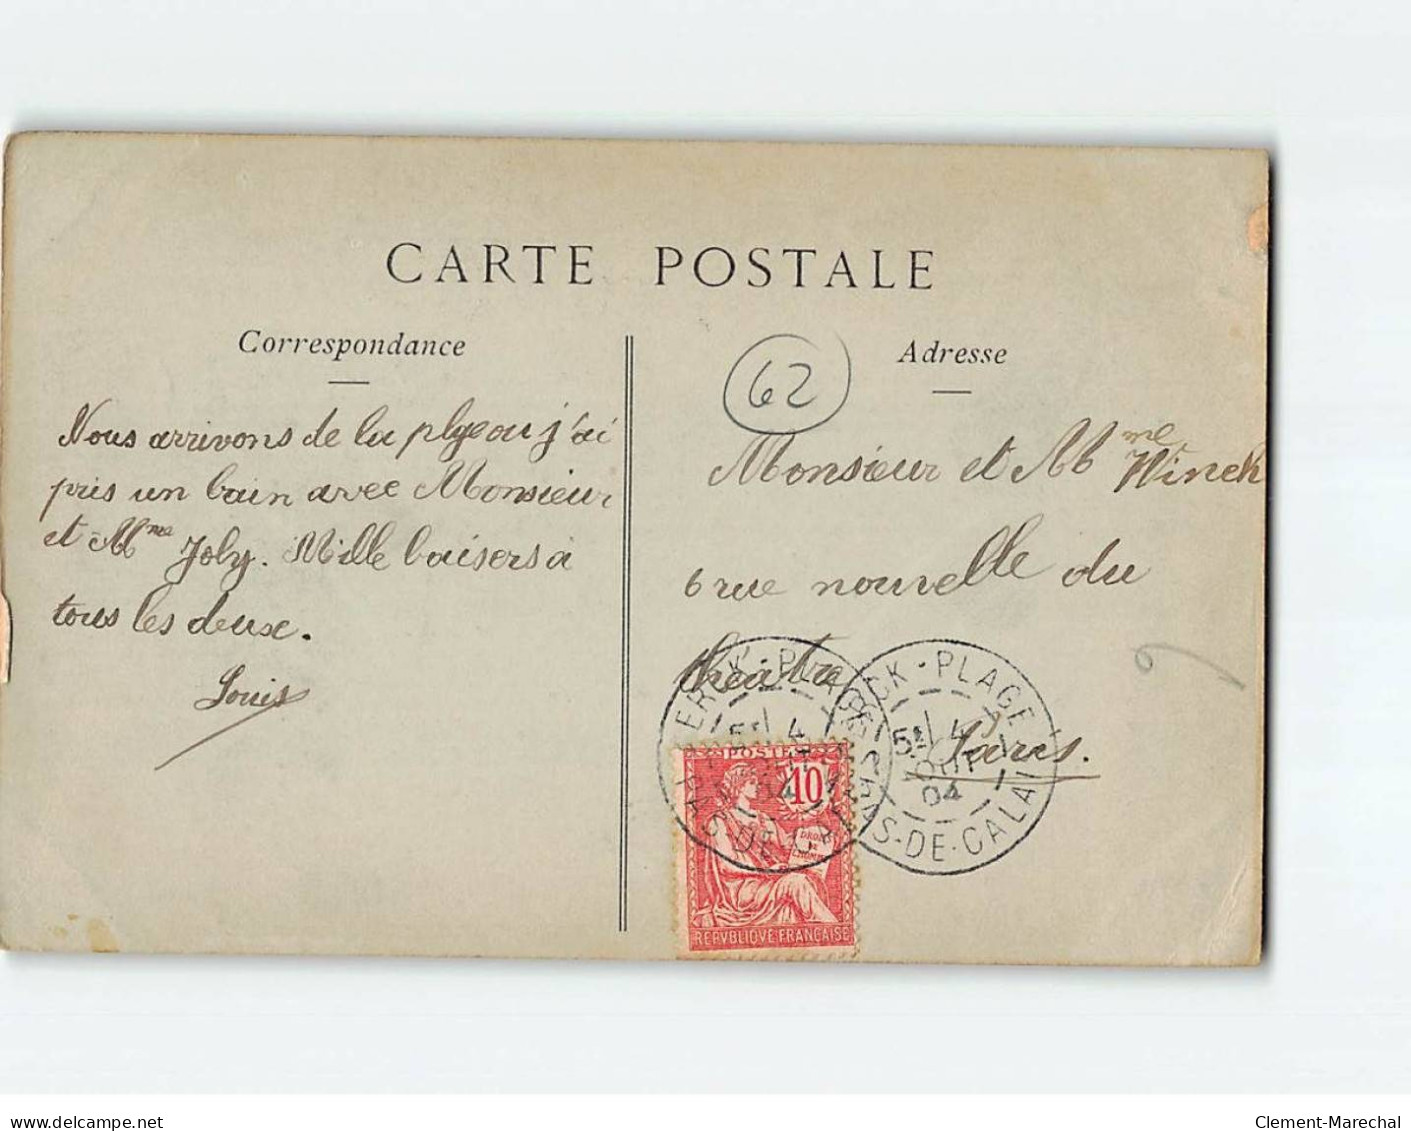 CARTE POSTALE
Correspondance
Nous arrivons de la plge ou j'ai
pris un bain avec Monsieur
et Mme Joly. Mille baisers à
tous les deux.
Louis
62
Adresse
Monsieur et Mme Winck
6 rue nouvelle du
théâtre
Paris.
BERCK-PLAGE
5E 4
AOUT
04
PAS-DE-CALAIS
BERCK-PLAGE
5E 4
AOUT
04
PAS-DE-CALAIS
POSTES
10
DROITS
DE
L'HOMME
REPVBLIQVE FRANÇAISE
www.delcampe.net
Clement-Marechal